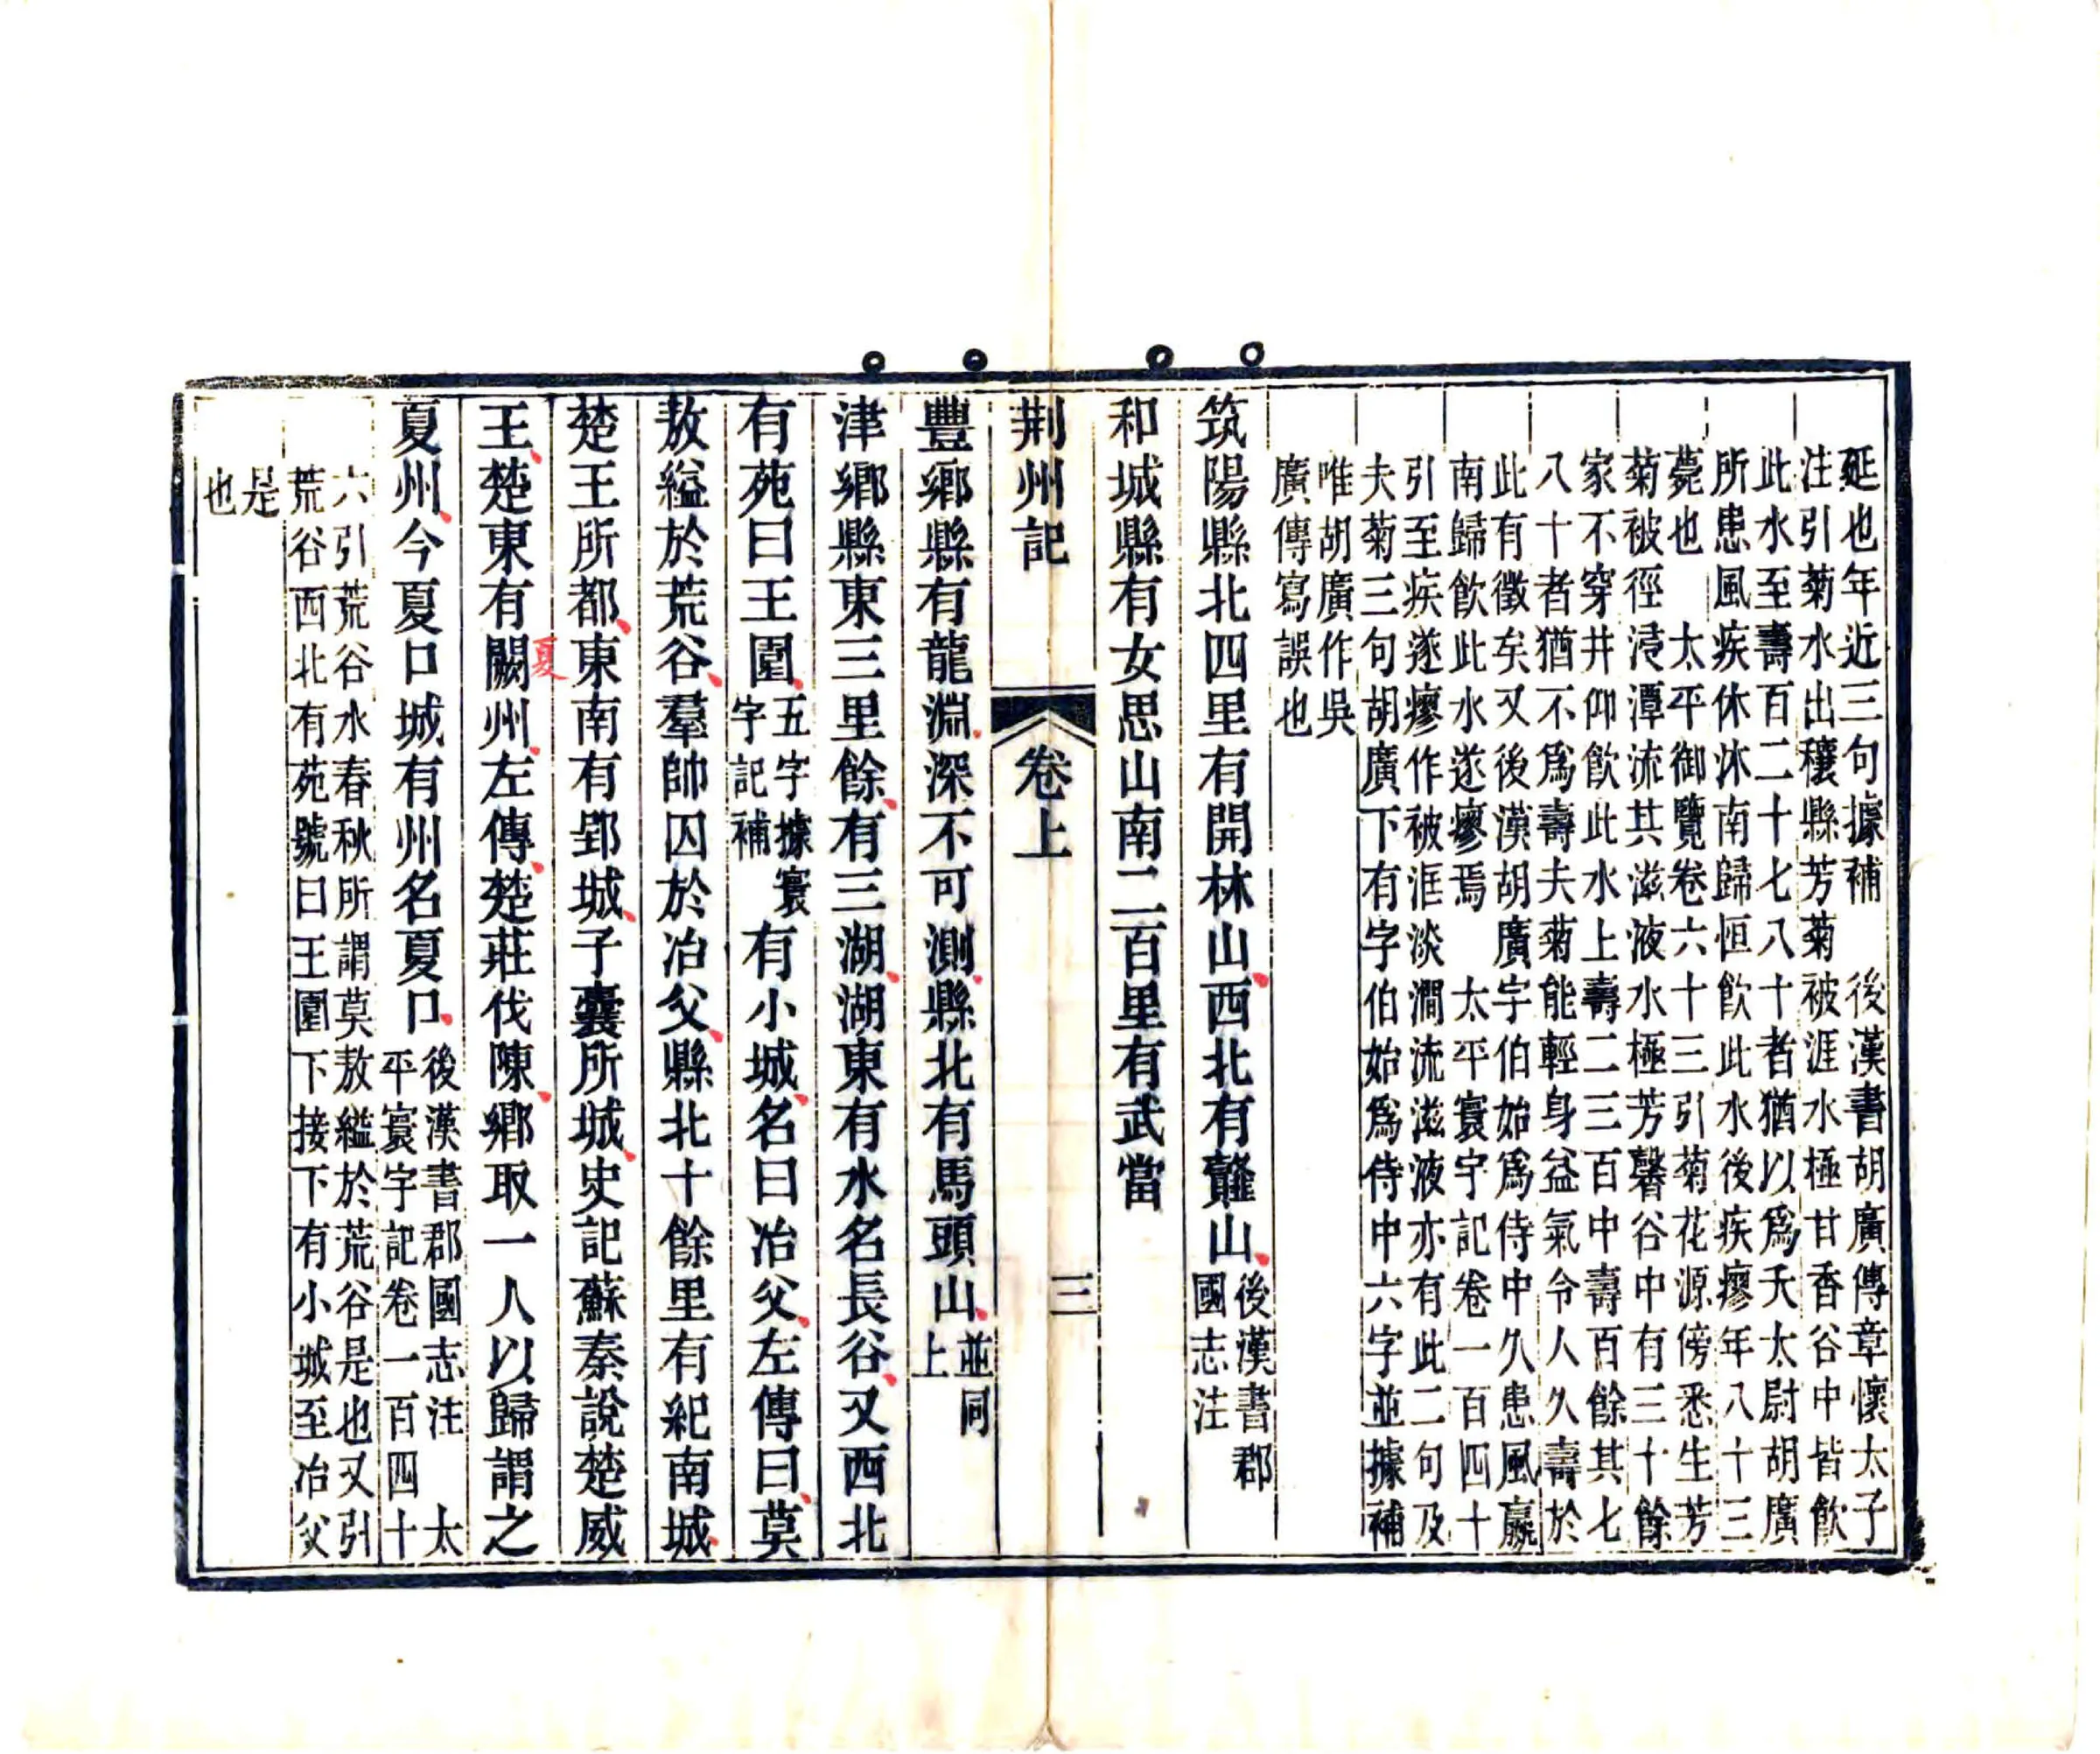 延也年近三句據補　後漢書胡廣傳章懷太子
注引菊水出穰縣芳菊被涯水極甘香谷中皆飲
此水至壽百二十七八十者猶以爲夭太尉胡廣
所患風疾休沐南歸恒飲此水後疾瘳年八十三
薨也　太平御覽卷六十三引菊花源傍悉生芳
菊被徑浸潭流其滋液水極芳馨谷中有三十餘
家不穿井仰飲此水上壽二三百中壽百餘其七
八十者猶不爲壽夫菊能輕身益氣令人久壽於
此有徵矣又後漢胡廣字伯始爲侍中久患風羸
南歸飲此水遂瘳焉　太平寰宇記卷一百四十
引至疾遂瘳作被洭淡澗流滋液亦有此二句及
夫菊三句胡廣下有字伯始爲侍中六字並據補
唯胡廣作吳
廣傳寫誤也
筑陽縣北四里有開林山西北有蘴山後漢書郡國志注
和城縣有女思山南二百里有武當
荆州記　卷上　三
豐鄉縣有龍淵深不可測縣北有馬頭山並同上
津鄉縣東三里餘有三湖湖東有水名長谷又西北
有苑曰王圍五字據寰字記補有小城名曰冶父左傳曰莫
敖縊於荒谷羣帥囚於冶父縣北十餘里有紀南城
楚王所都東南有郢城子囊所城史記蘇秦說楚威
夏
王楚東有闕州左傳楚莊伐陳鄉取一人以歸謂之
夏州今夏口城有州名夏口後漢書郡國志注　太
平寰宇記卷一百四十
六引荒谷水春秋所謂莫敖縊於荒谷是也又引
荒谷西北有苑號曰王圍下接下有小城至冶父
是
也